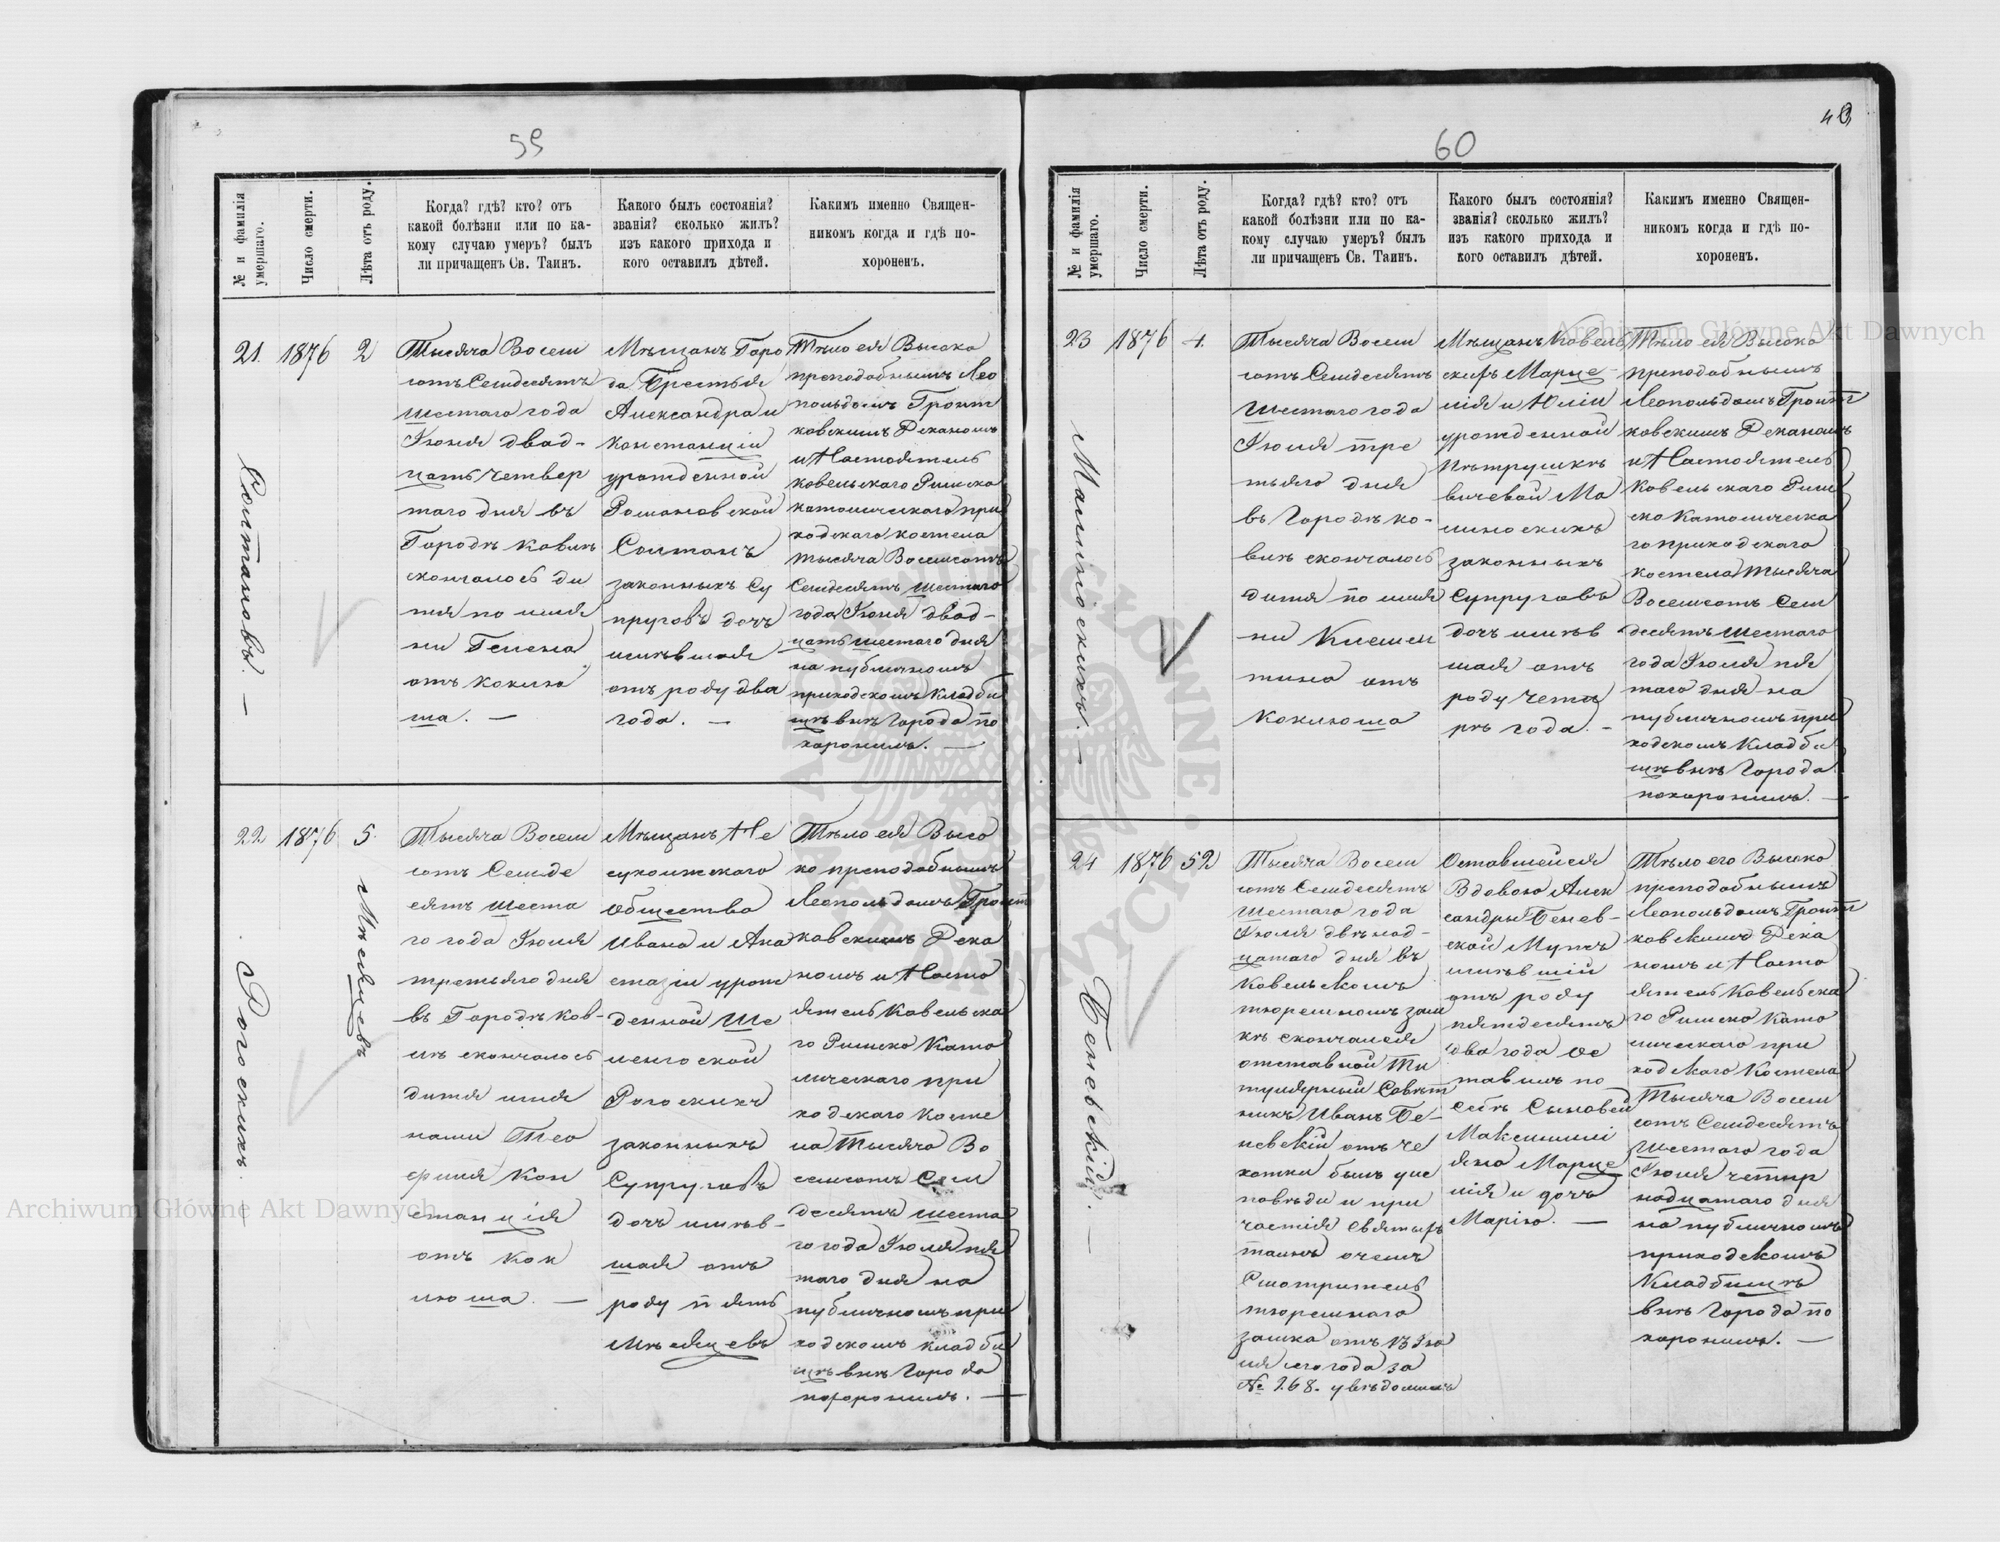 59
№ и фамилія умершаго.
Число смерти.
Лѣта отъ роду.
Когда? гдѣ? кто? отъ
какой болѣзни или по ка-
кому случаю умеръ? былъ
ли причащенъ Св. Таинъ.
Какого былъ состоянія?
званія? сколько жилъ?
изъ какого прихода и
кого оставилъ дѣтей.
Какимъ именно Священ-
никомъ когда и гдѣ по-
хороненъ.
21.
Солтановъ. —
1876
2
Тысяча Восем
сотъ Семдесятъ
шестаго года
Іюня двад-
цать четвер
таго дня въ
Городѣ Ковлѣ
скончалось ди
тя по имя
ни Гелена
отъ коклю
ша. —
Мѣщанъ Горо
да Брестья
Александра и
Констанціи
урожденной
Романовской
Солтанъ
законныхъ Су
пруговъ дочь
имѣвшая
отъ роду два
года. —
Тѣло ея Высоко
преподобнымъ Лео
польдомъ Гронт
ковскимъ Деканомъ
и Настоятель
Ковельскаго Римско
католическаго при
ходскаго костела
тысяча Восемсотъ
Семдесятъ шестаго
года Іюня двад-
цать шестаго дня
на публичномъ
приходскомъ кладби
щѣ внѣ Города по
хоронилъ. —
22
Рогоскихъ. —
1876
5.
Мѣсяцевъ
Тысяча Восем
сотъ Семде
сятъ шеста
го года Іюля
третьяго дня
въ Городѣ Ков-
лѣ скончалось
дитя имя
нами Тео
филя Кон
станція
отъ кок
люша. —
Мѣщанъ Не
сухоижскаго
общества
Ивана и Ана
стазіи урож
денной Ше
ленгоской
Рогоскихъ
законныхъ
Супруговъ
дочь имѣв-
шая отъ
роду пять
мѣсяцевъ
Тѣло ея Высо
ко преподобнымъ
Леопольдомъ Гронт
ковскимъ Дека
номъ и Насто
ятель Ковельска
го Римско Като
лическаго при
ходскаго косте
ла Тысяча Во
семсотъ Сем
десятъ шеста
го года Іюля пя
таго дня на
публичномъ при
ходскомъ кладби
щѣ внѣ Города
похоронилъ. —
60
№ и фамилія умершаго.
Число смерти.
Лѣта отъ роду.
Когда? гдѣ? кто? отъ
какой болѣзни или по ка-
кому случаю умеръ? былъ
ли причащенъ Св. Таинъ.
Какого былъ состоянія?
званія? сколько жилъ?
изъ какого прихода и
кого оставилъ дѣтей.
Какимъ именно Священ-
никомъ когда и гдѣ по-
хороненъ.
23
Малиноскихъ. —
1876
4.
Тысяча Восем
сотъ Семдесятъ
шестаго года
Іюля тре
тьяго дня
въ Городѣ Ко-
влѣ скончалось
дитя по имя
ни Клемен
тина отъ
коклюша
Мѣщанъ Ковель
скихъ Марце-
лія и Юліи
урожденной
вичевой Ма
линоскихъ
законныхъ
Супруговъ
дочь имѣв
шая отъ
роду четы
рѣ года. —
Тѣло ея Высоко
преподобнымъ
Леопольдомъ Гронт
ковскимъ Деканомъ
и Настоятель
Ковельскаго Рим
ско Католическа
го приходскаго
костела Тысяча
Восемсотъ Сем
десятъ шестаго
года Іюля пя
таго дня на
публичномъ при
ходскомъ Кладби
щѣ внѣ Города
похоронилъ. —
24
Беневскій. —
1876
52
Тысяча Восем
сотъ Семдесятъ
шестаго года
Іюля двѣнад-
цатаго дня въ
Ковельскомъ
тюремномъ зам
кѣ скончался
отставной Ти
тулярный Совѣт
никъ Иванъ Бе-
невскій отъ че
хотки былъ уис
повѣди и при
частія Святыхъ
таинъ о чемъ
Смотритель
тюремнаго
замка отъ 13 Ію
ля сего года за
№ 268. увѣдомилъ
Оставшейся
Вдовою Алек
сандры Бенев-
ской Мужъ
имѣвшій
отъ роду
пятдесятъ
два года ос
тавилъ по
себѣ Сыновей
Максимилі
яна Марце
лія и дочь
Марію. —
Тѣло его Высоко
преподобнымъ
Леопольдомъ Гронт
ковскимъ Дека
номъ и Насто
ятель Ковельска
го Римско Като
лическаго при
ходскаго Костела
Тысяча Восем
сотъ Семдесятъ
шестаго года
Іюля четыр
надцатаго дня
на публичномъ
приходскомъ
Кладбищѣ
внѣ Города по
хоронилъ. —
Archiwum Główne Akt Dawnych
Archiwum Główne Akt Dawnych